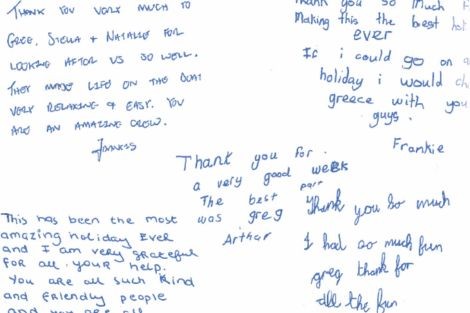 THANK YOU VERY MUCH TO
GREG, STELLA & NATALIE FOR
LOOKING AFTER US SO WELL.
THEY MADE LIFE ON THE BOAT
VERY RELAXING & EASY. YOU
ARE AN AMAZING CREW.
Thank you so much
Making this the best
ever
If i could go on a
holiday i would
greece with you
guys.
Frankie
Thank you for
a very good week
The best part
was greg
Arthur
This has been the most
amazing holiday Ever
and I am very grateful
for all your help.
You are all such kind
and friendly people
and you are all
Thank you so much
I had so much fun
greg thank for
all the fun